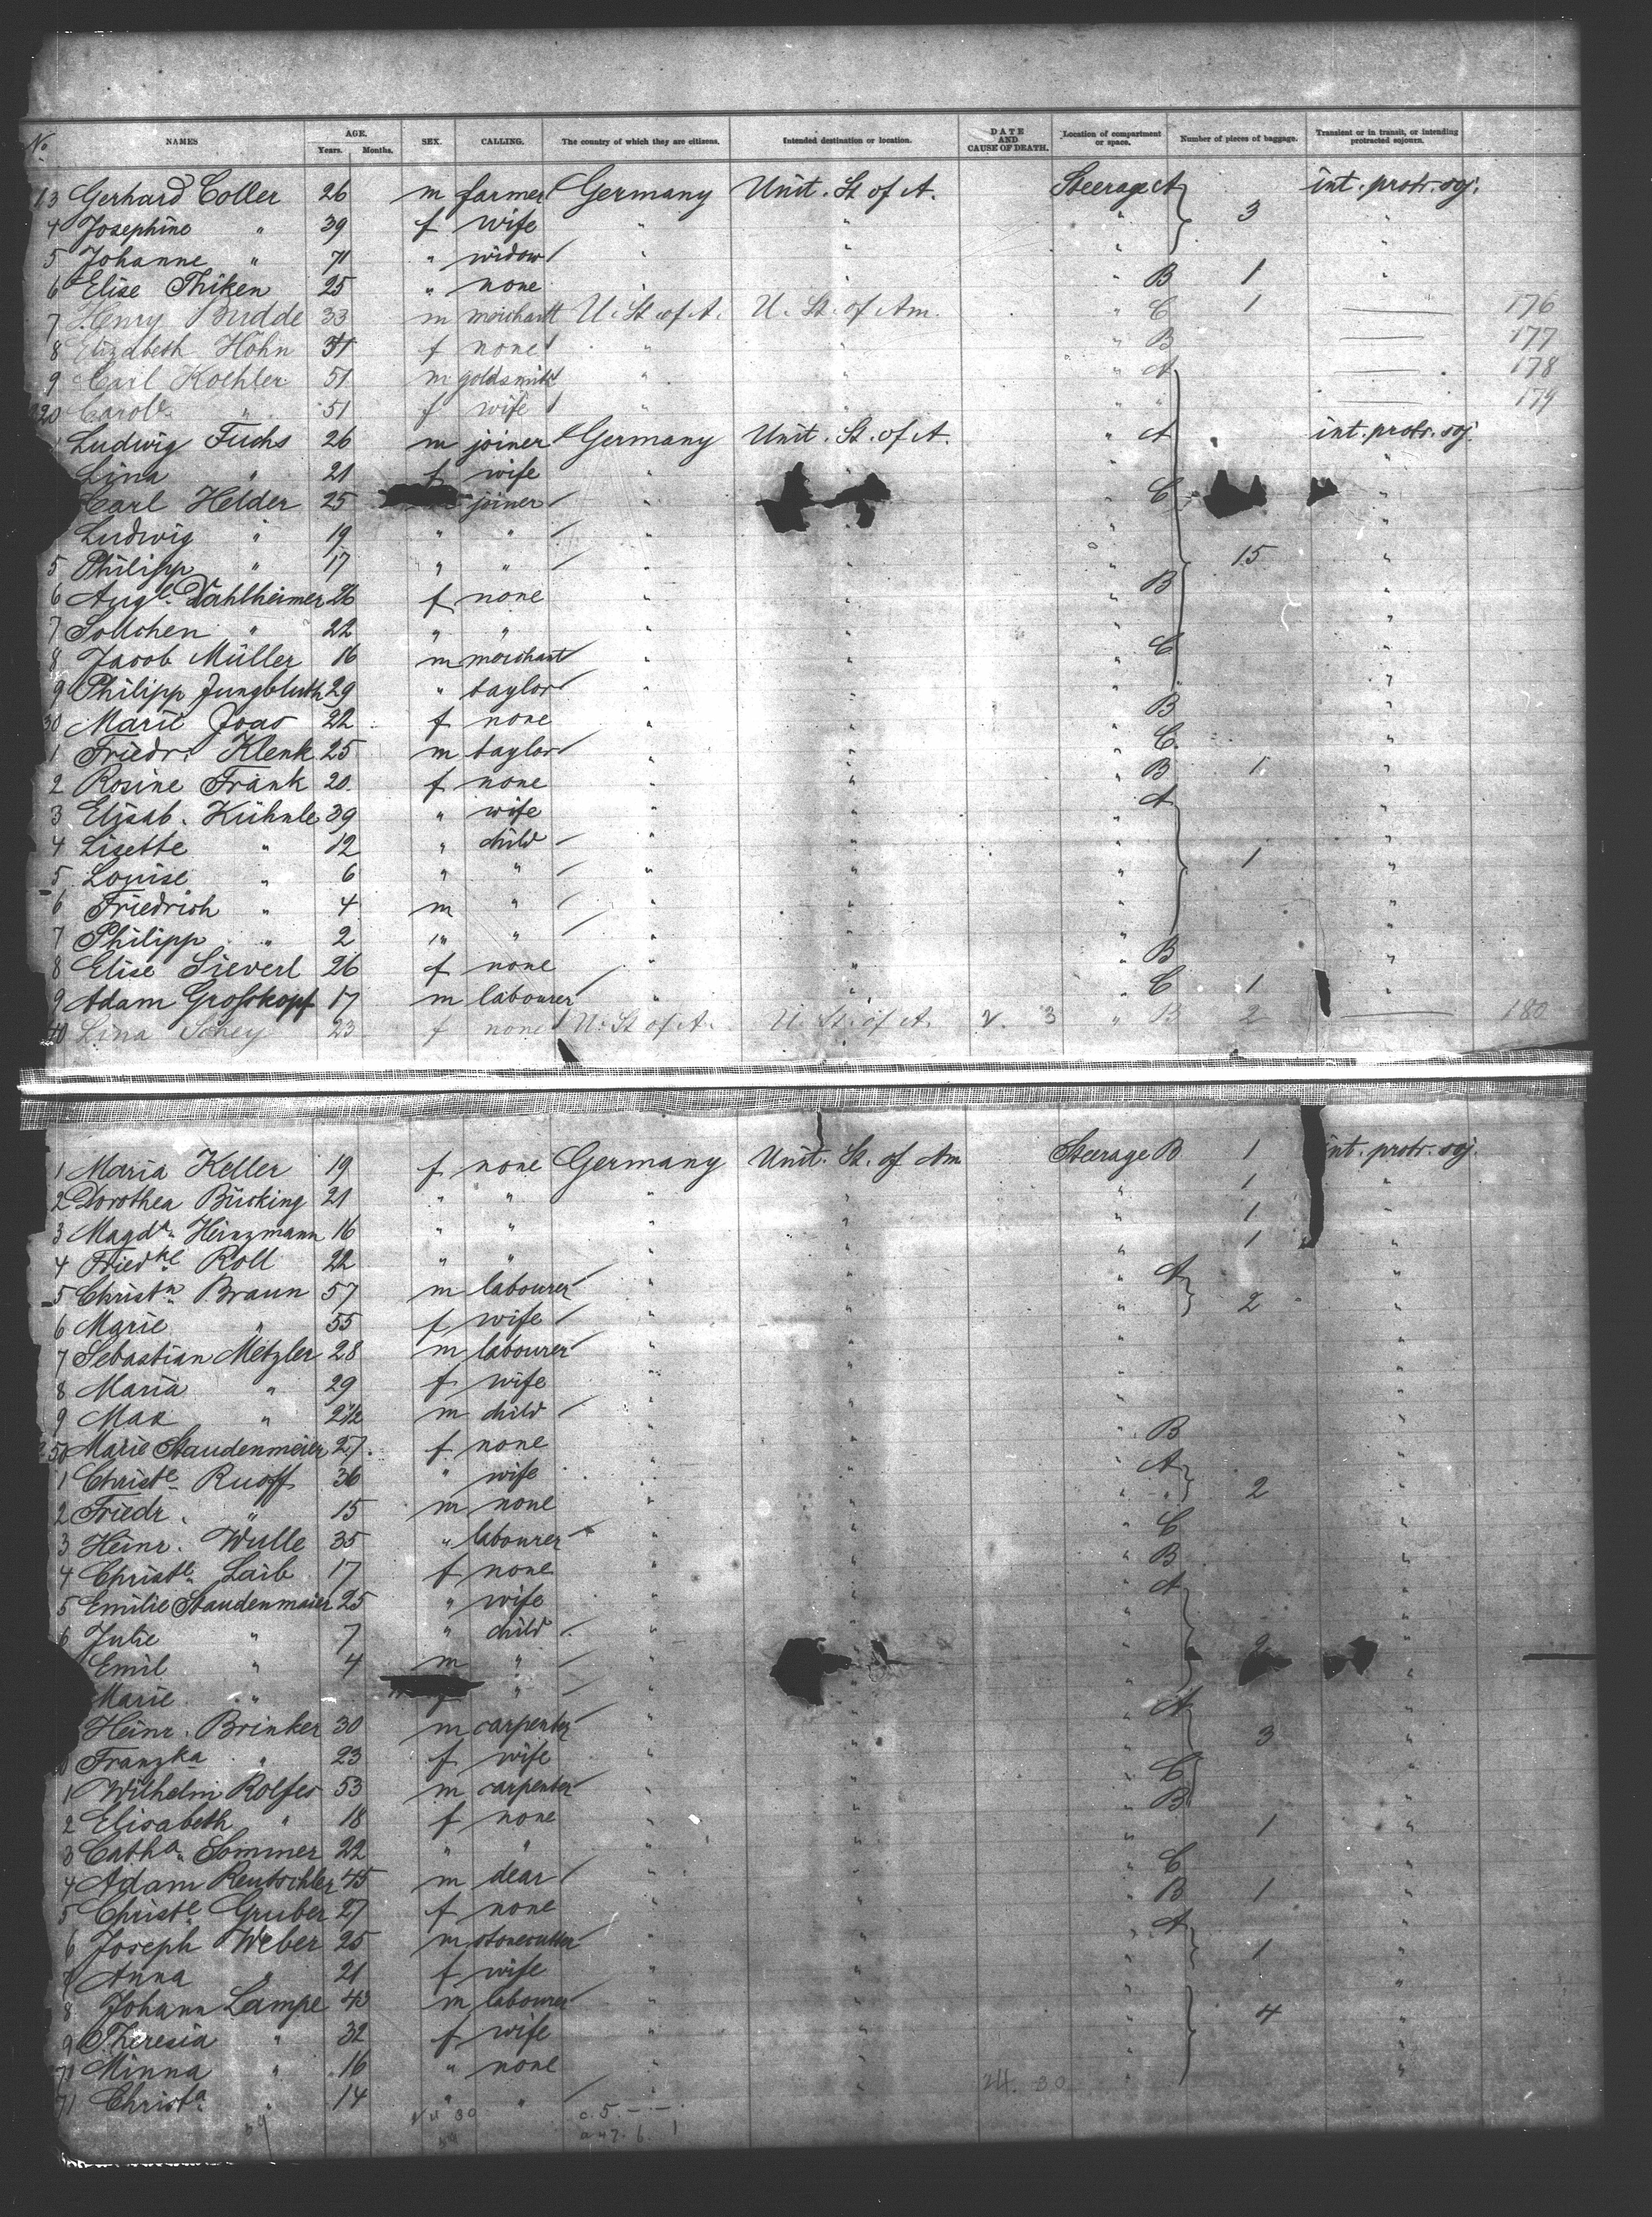 No NAMES AGE. Years. Months. SEX. CALLING. The country of which they are citizens. Intended destination or location. DATE AND CAUSE OF DEATH. Location of compartment or space. Number of pieces of baggage. Transient or in transit, or intending protracted sojourn.
13 Gerhard Coller 26 m farmer Germany Unit. St. of A. Steerage A int. protr. soj.
4 Josephine " 39 f wife " " " 3 "
5 Johanne " 71 " widow " " "
6 Elise Thiken 25 " none " " " B 1 "
7 Henry Budde 33 m merchant U. St. of A. U. St. of Am. " C 1 — 176
8 Elizabeth Höhn 31 f none " " " B — 177
9 Carl Koehler 51 m goldsmith " " " A — 178
220 Carole " 51 f wife " " " " — 179
Ludwig Fuchs 26 m joiner Germany Unit. St. of A. " A int. protr. soj.
Lina " 21 f wife " " " "
Carl Helder 25 joiner " " C "
Ludwig " 19 " " " " " "
5 Philipp " 17 " " " " " 15 "
6 Augte. Dahlheimer 26 f none " " " B "
7 Lottchen " 22 " " " " " "
8 Jacob Müller 16 m merchant " " " C "
9 Philipp Jungbluth 29 " taylor " " " " "
30 Marie Joas 22 f none " " " B "
1 Friedr. Klenk 25 m taylor " " " C "
2 Rosine Frank 20 f none " " " B 1 "
3 Elisab. Kühnle 39 " wife " " " A "
4 Lisette " 12 " child " " " "
5 Louise " 6 " " " " " 1 "
6 Friedrich " 4 m " " " " "
7 Philipp " 2 " " " " " "
8 Elise Sieverl 26 f none " " " B "
9 Adam Grosskopf 17 m labourer " " " C 1 "
40 Lina Schey 23 f none U. St. of A. U. St. of A. 3 " B 2 — 180
1 Maria Keller 19 f none Germany Unit. St. of Am Steerage B 1 int. protr. soj.
2 Dorothea Bücking 21 " " " " " 1 "
3 Magda. Heinzmann 16 " " " " " 1
4 Friedke Roll 22 " " " " " 1 "
5 Christn. Braun 57 m labourer " " " A "
6 Marie " 55 f wife " " " 2 "
7 Sebastian Metzler 28 m labourer " " " "
8 Maria " 29 f wife " " " "
9 Max " 2 1/2 m child " " " "
250 Marie Staudenmeier 27 f none " " " B "
1 Christe. Ruoff 36 " wife " " " A "
2 Friedr. " 15 m none " " " " 2 "
3 Heinr. Wulle 35 " labourer " " " C "
4 Christe. Laib 17 f none " " " B "
5 Emilie Staudenmaier 25 " wife " " " A "
6 Julie " 7 " child " " " "
Emil " 4 m " " " 2 "
Marie " " " " "
Heinr. Brinker 30 m carpenter " " " A "
Franzka " 23 f wife " " " 3 "
1 Wilhelm Rolfes 53 m carpenter " " " C "
2 Elisabeth " 18 f none " " " B "
3 Catha. Sommer 22 " " " " " 1 "
4 Adam Reutschler 45 m dear " " " C "
5 Christe. Gruber 27 f none " " " B 1 "
6 Joseph Weber 25 m stonecutter " " " A "
7 Anna " 21 f wife " " " 1 "
8 Johann Lampe 40 m labourer " " " "
9 Theresia " 32 f wife " " " 4 "
Minna " 16 " none " " " "
71 Christa. " 14 " " " "